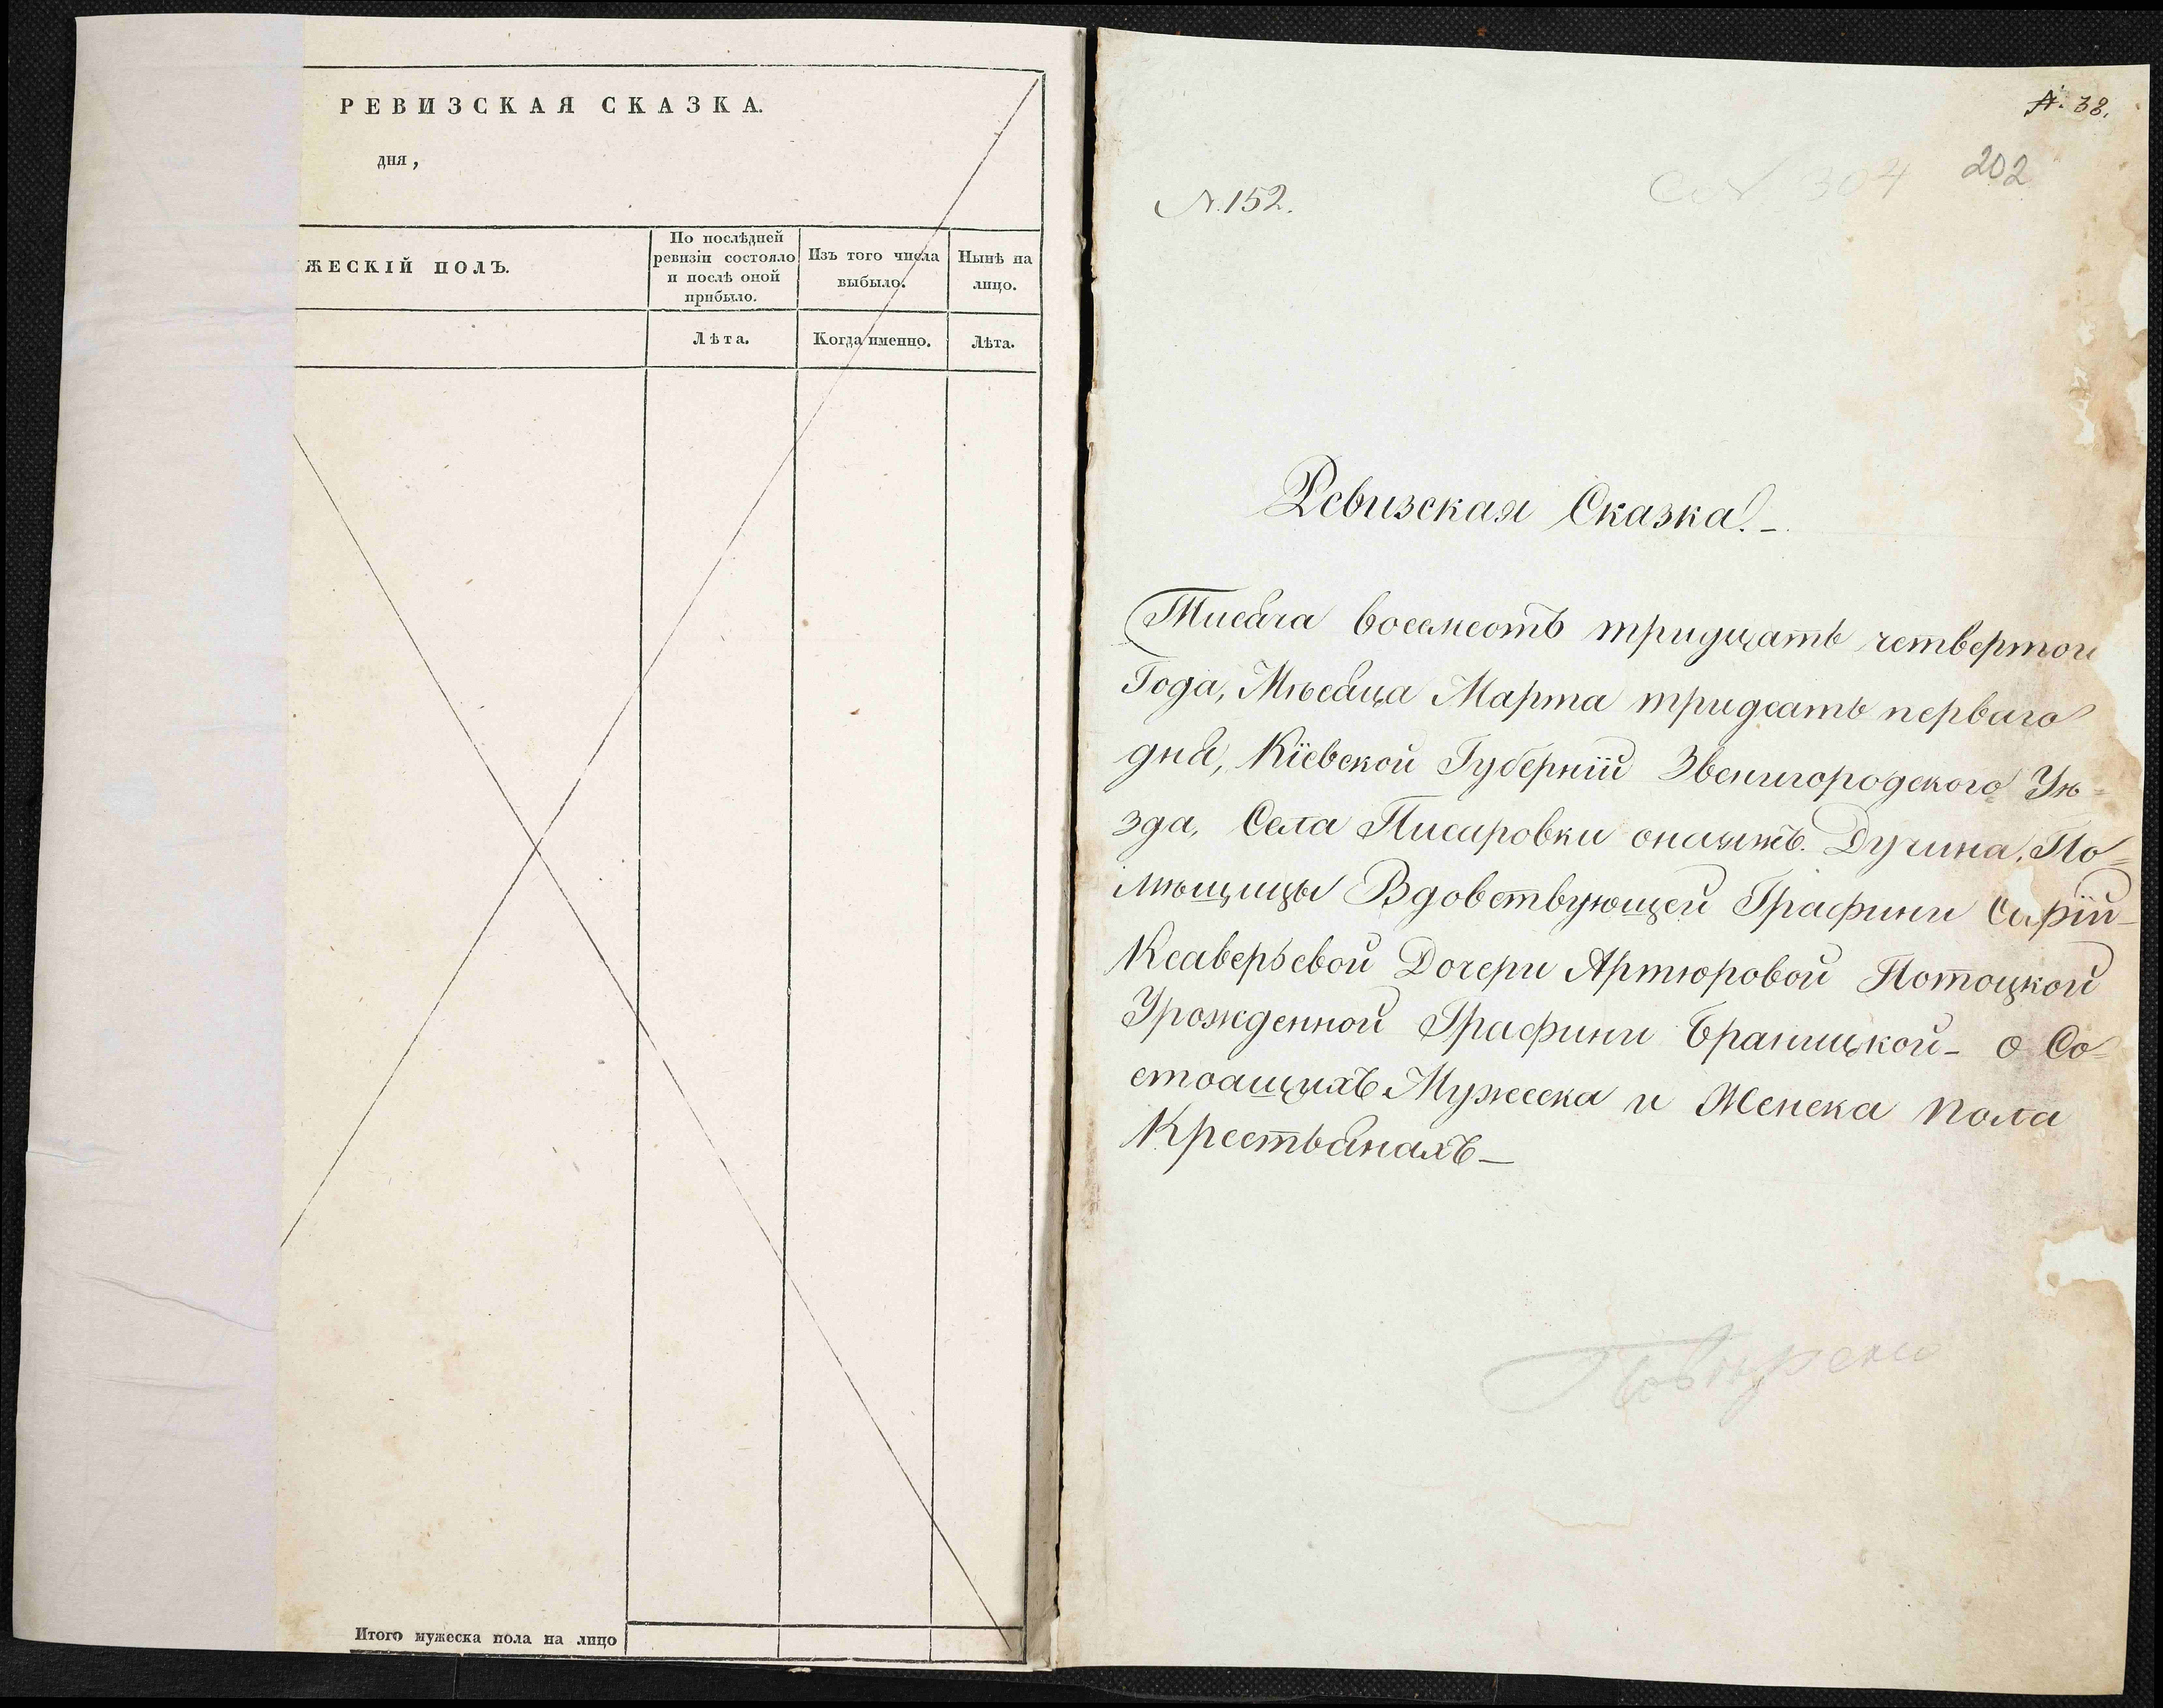 РЕВИЗСКАЯ СКАЗКА.
дня,
ЖЕСКІЙ ПОЛЪ.
По послѣдней
ревизіи состояло
и послѣ оной
прибыло.
Изъ того числа
выбыло.
Нынѣ на
лицо.
Лѣта.
Когда именно.
Лѣта.
Итого мужеска пола на лицо
N. 38.
202
304
N. 152.
Ревизская Сказка.-
Тисяча восемсотъ тридцать четвертои
Года, Мѣсяца Марта тридсать перваго
дня, Кіевской Губерніи Звенигородского Уѣ=
зда, Села Писаровки онажъ Дучина, По=
мѣщицы Вдовствующей Графини Софіи-
Ксаверьевой Дочери Артюровой Потоцкой
Урожденной Графини Браницкой- о Со=
стоащихъ Мужеска и Женска пола
Крестьянахъ-
Повѣрено